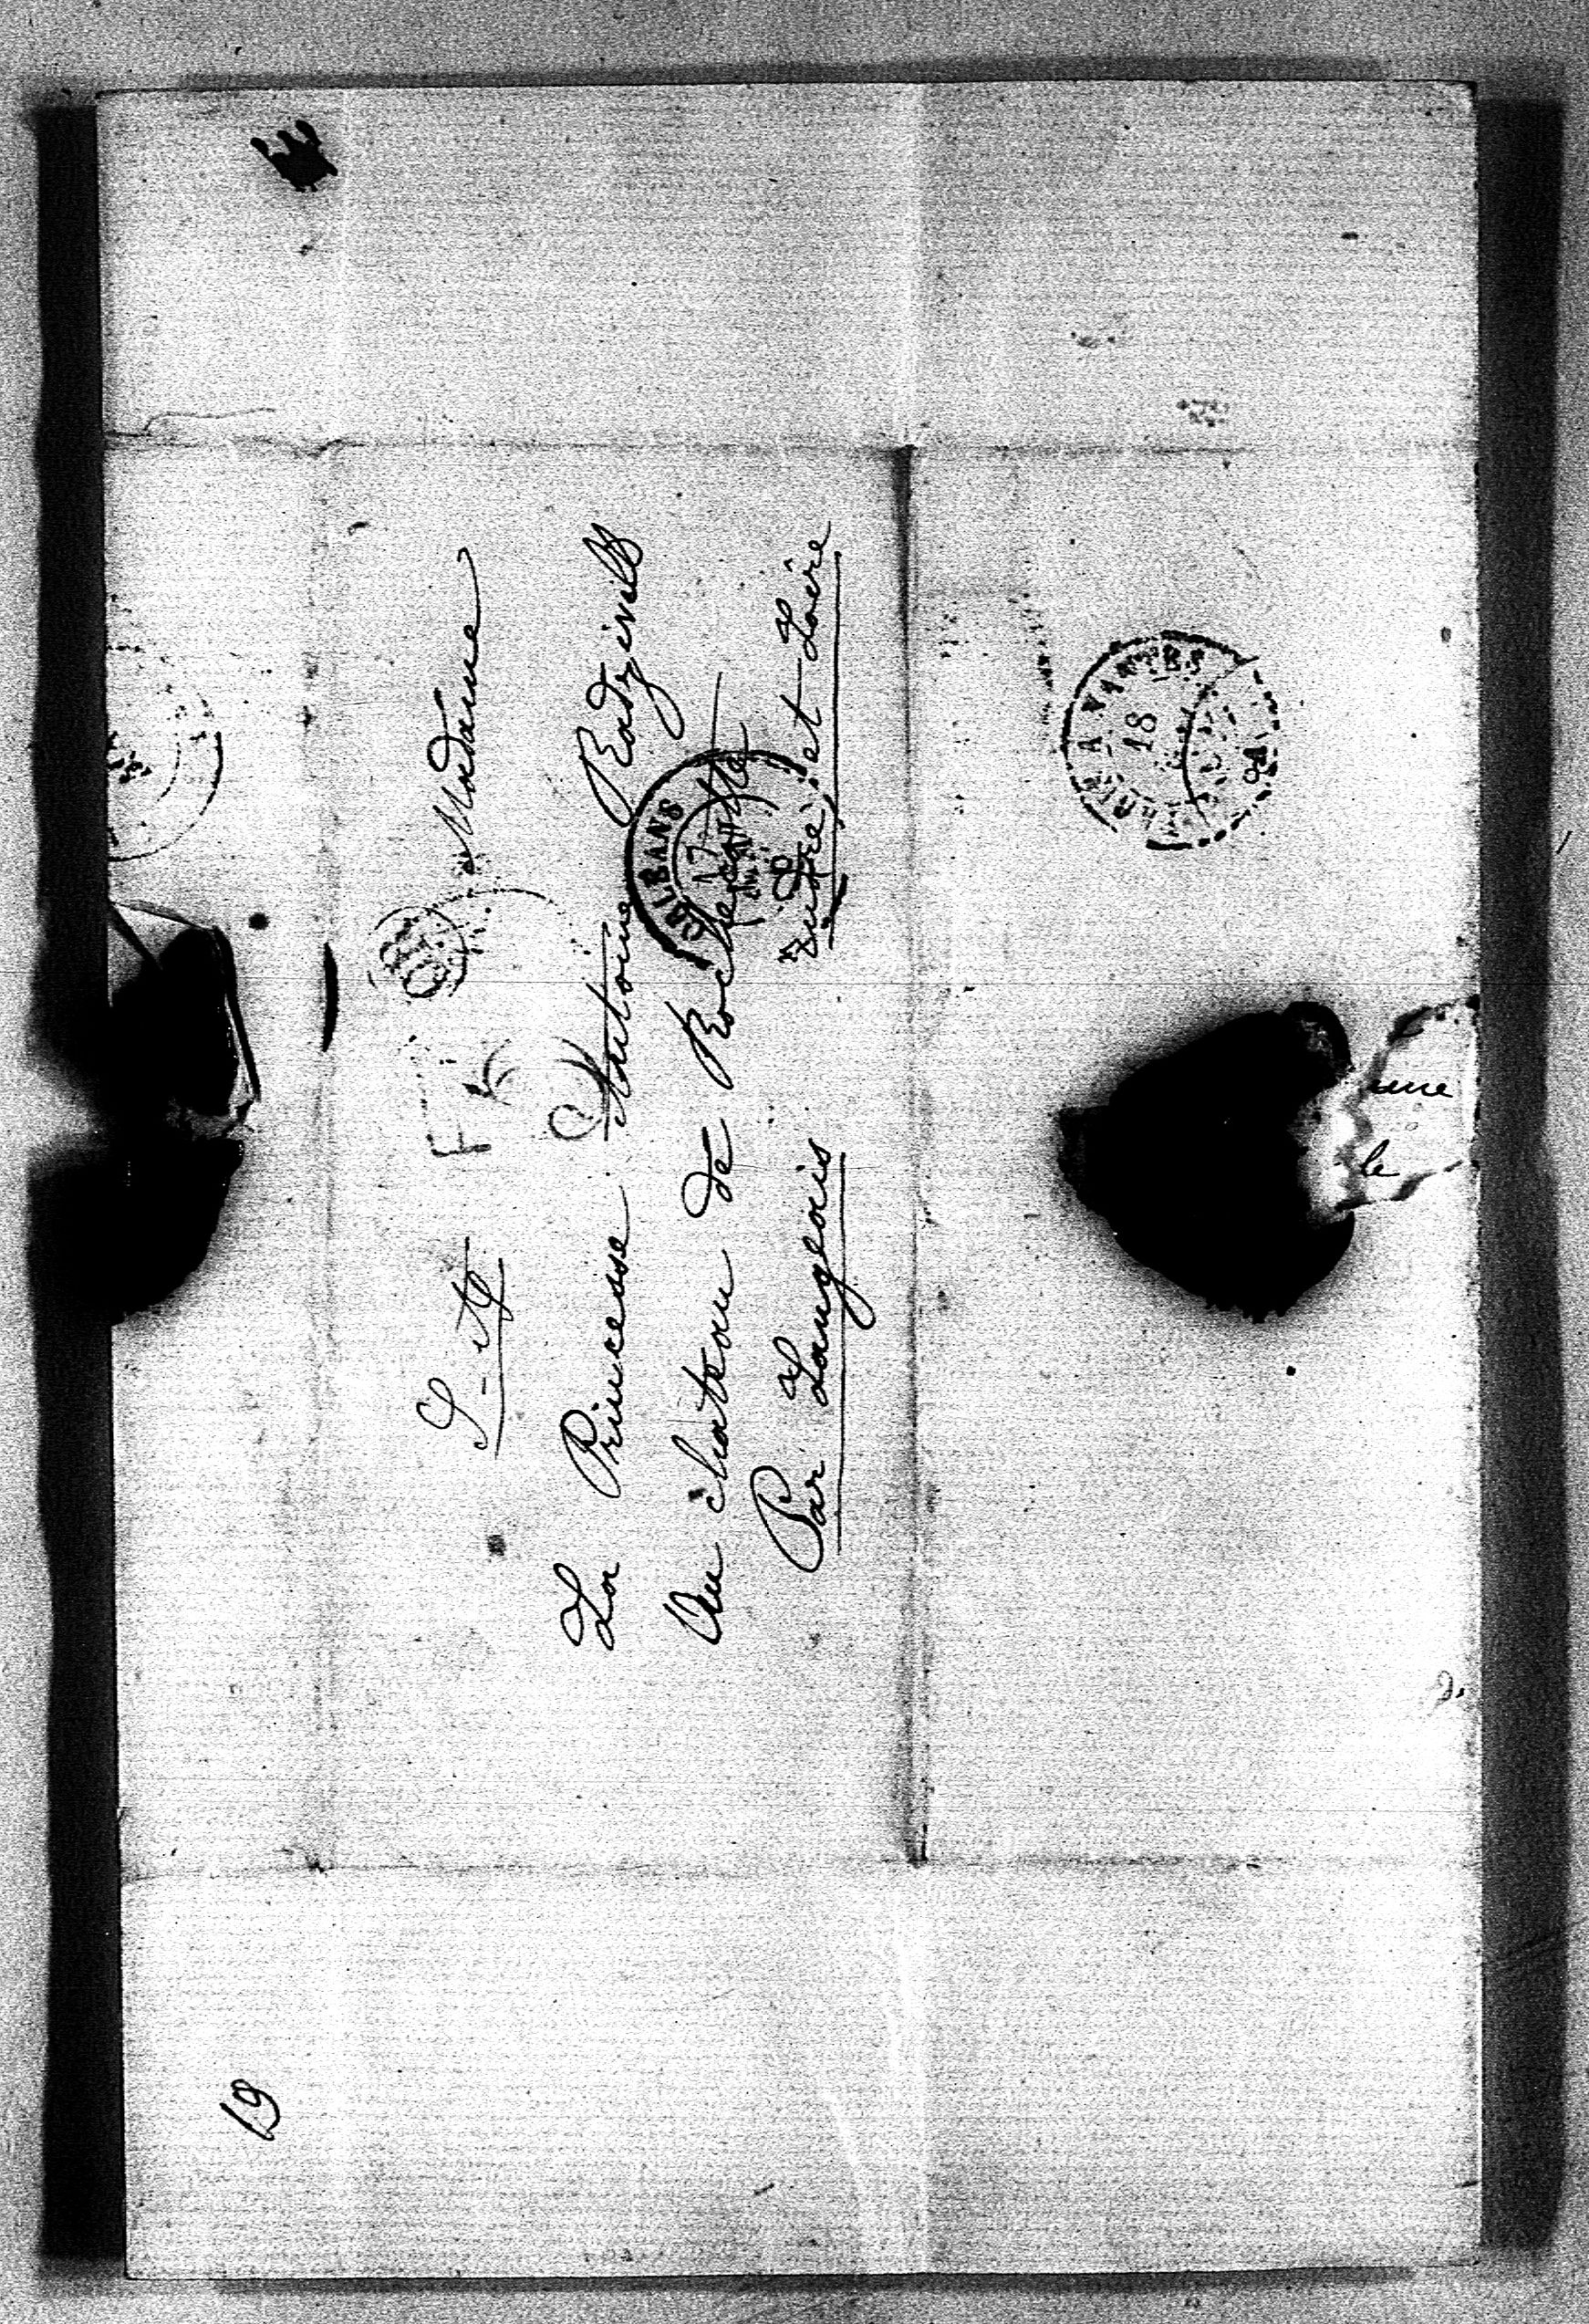 Madame
La Princesse Antoine Radzivill
Au château de Rochecotte
Par Langeais Indre et Loire
A NANTES
18
ALBANS
17
une
le
19